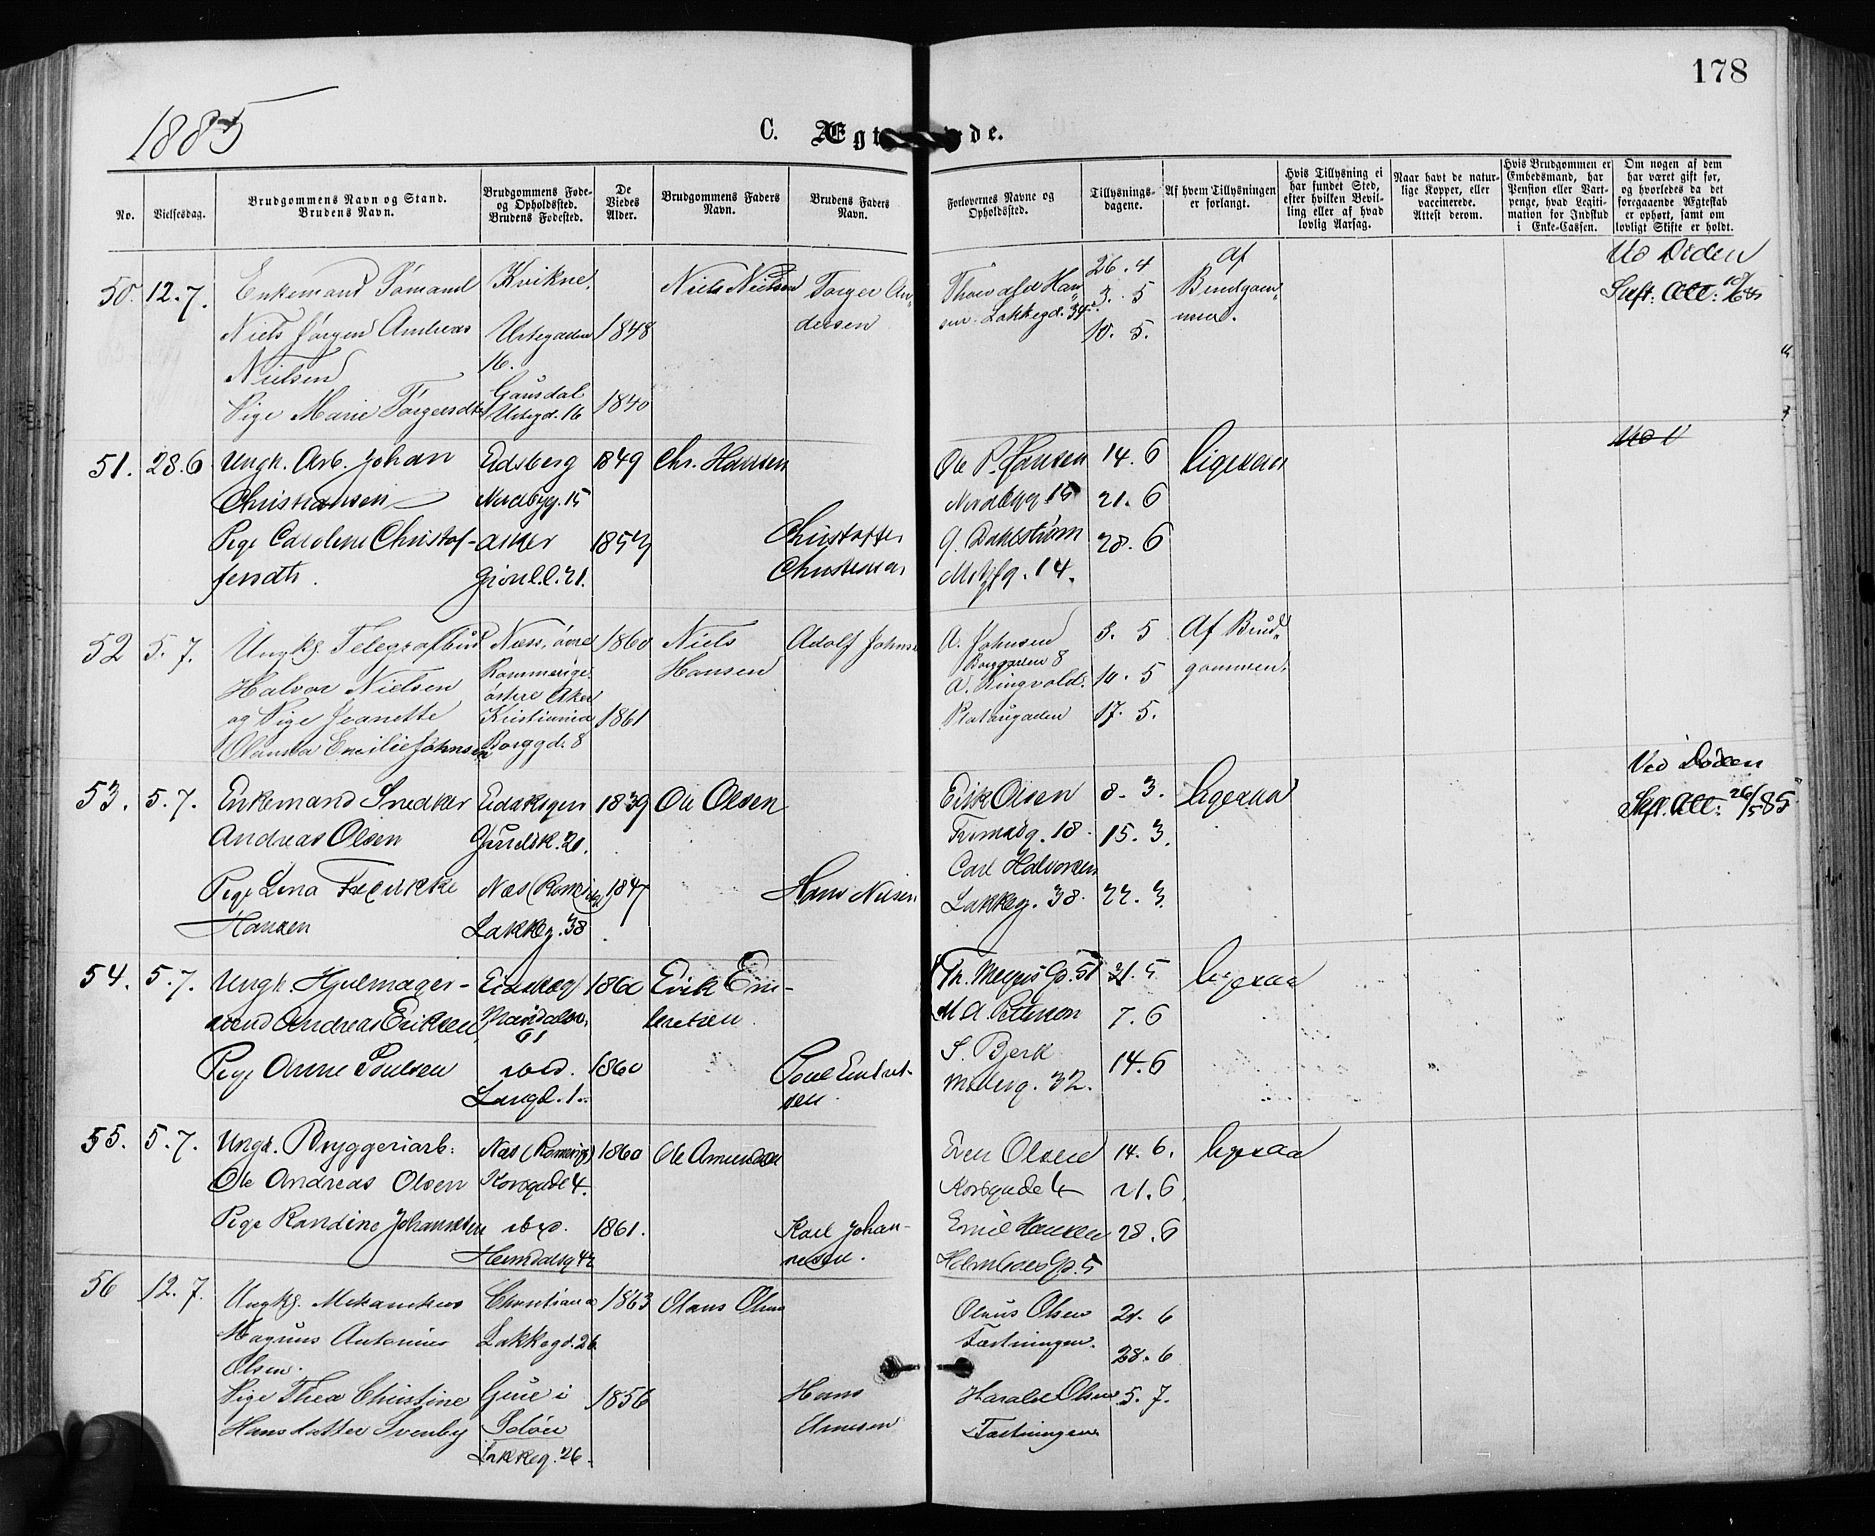 178
1885
C. Ægt de.
No.
Vielsesdag.
Brudgommens Navn og Stand.
Brudens Navn.
Brudgommens Føde-
og Opholdssted.
Brudens Fødested.
De
Viedes
Alder.
Brudgommens Faders
Navn.
Brudens Faders
Navn.
Forlovernes Navne og
Opholdssted.
Tillysnings-
dagene.
Af hvem Tillysningen
er forlangt.
Hvis Tillysning ei
har fundet Sted,
efter hvilken Bevil-
ling eller af hvad
lovlig Aarsag.
Naar havt de natur-
lige Kopper, eller
vaccinerede.
Attest derom.
Hvis Brudgommen er
Embedsmand, har
Pension eller Vart-
penge, hvad Legiti-
mation for Indskud
i Enke-Cassen.
Om nogen af dem
har været gift før,
og hvorledes da det
foregaaende Ægteskab
er ophørt, samt om
lovligt Skifte er holdt.
50. 12.7. Enkemand Sømand Kvikne. Niels Nielsen Torger An- Thorvald Han- 26.4 af Ved Døden
Niels Jørgen Andreas Urtegaden 1848 dersen sen Lakkegd. 39 3. 5 Brudgom- Skift. Att:
Nielsen 16. 10. 5. men.
Pige Marie Torgersdtr Gausdal Urtegd. 16 1840
51. 28.6 Ungk. Arb. Johan Eidsberg 1849 Chr. Hansen Ole P. Hansen 14.6 ligesaa
Christiansen Nordbyg. 15 Nordbyg. 15 21.6
Pige Caroline Christof- Asker Christoffer G. Dahlstrøm 28.6
fersdtr. Grønl.l. 21. Christensen Motzfg. 14.
52 5.7. Ungkg. Telegrafbud Næs, øvre 1860 Niels Adolf Johnsen A. Johnsen 3. 5 Af Brud-
Halvor Nielsen Rommerige. Hansen Borggaden 8 10. 5 gommen.
og Pige Jeanette østre Aker A. Ringvold.
Kristiania 1861 Platougaden 17. 5.
Olanda Emilie Johnsen Borggd. 8
53. 5.7. Enkemand Snedker Eidskogen 1839 Ole Olsen Erik Olsen 8. 3. ligesaa Ved Døden
Andreas Olsen 21. 18 15. 3. Skft. Att: 26/5 85
Pige Lina Fredrikke Næs (Romerige) 1847 Hans Nilsen Carl Halvorsen
Hansen Lakkeg. 38 Lakkeg. 38 22. 3.
54. 5.7. Ungk. Hjulmager- Eidskog 1860 Erik Em- Th. Meyers G. 51 5 ligesaa
svend Andreas Eriksen bretsen M. A. Petterson 7. 6
Pige Anne Poulsen ibid. 1860 Poul Embret- S. Bjerk 14.6
Langg. 1. sen Møllerg. 32.
55. 5.7. Ungk. Bryggeriarb. Næs (Romerige) 1860 Ole Amundsen Even Olsen 14. 6. ligesaa
Ole Andreas Olsen Korsgade 4. Korsgade 4 21.6
Pige Randine Johannesen ibid. 1861. Karl Johan- Emil Hansen 28.6
Heimdalsg 42 nesen. Holmboes G. 5
56 12.7. Ungkg. Mekanikus Christiania 1863 Olaus Olsen Olaus Olsen 21. 6
Magnus Antonius Lakkegd. 26 Fæstningen.
Olsen. 28. 6
Pige Thea Christine i 1856 Hans Harald Olsen 5. 7.
Hansdatter Svenby Lakkeg. 26 Arnesen Fæstningen